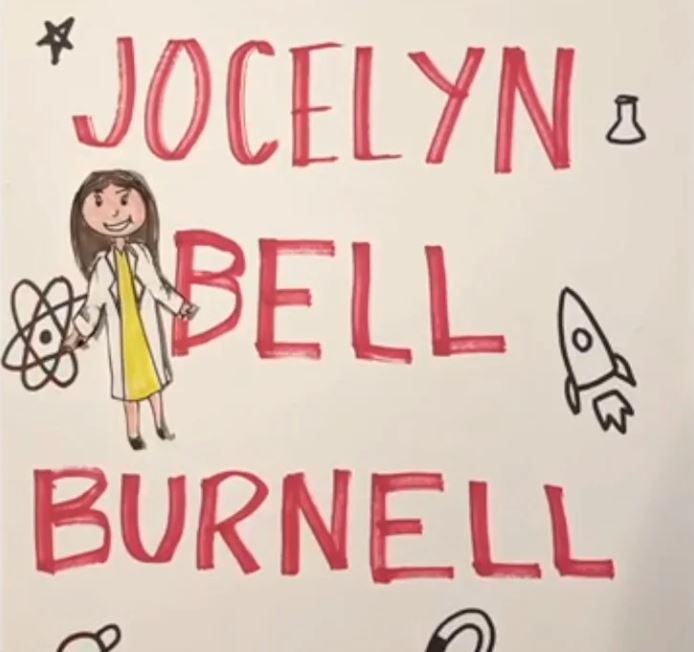 JOCELYN
BELL
BURNELL